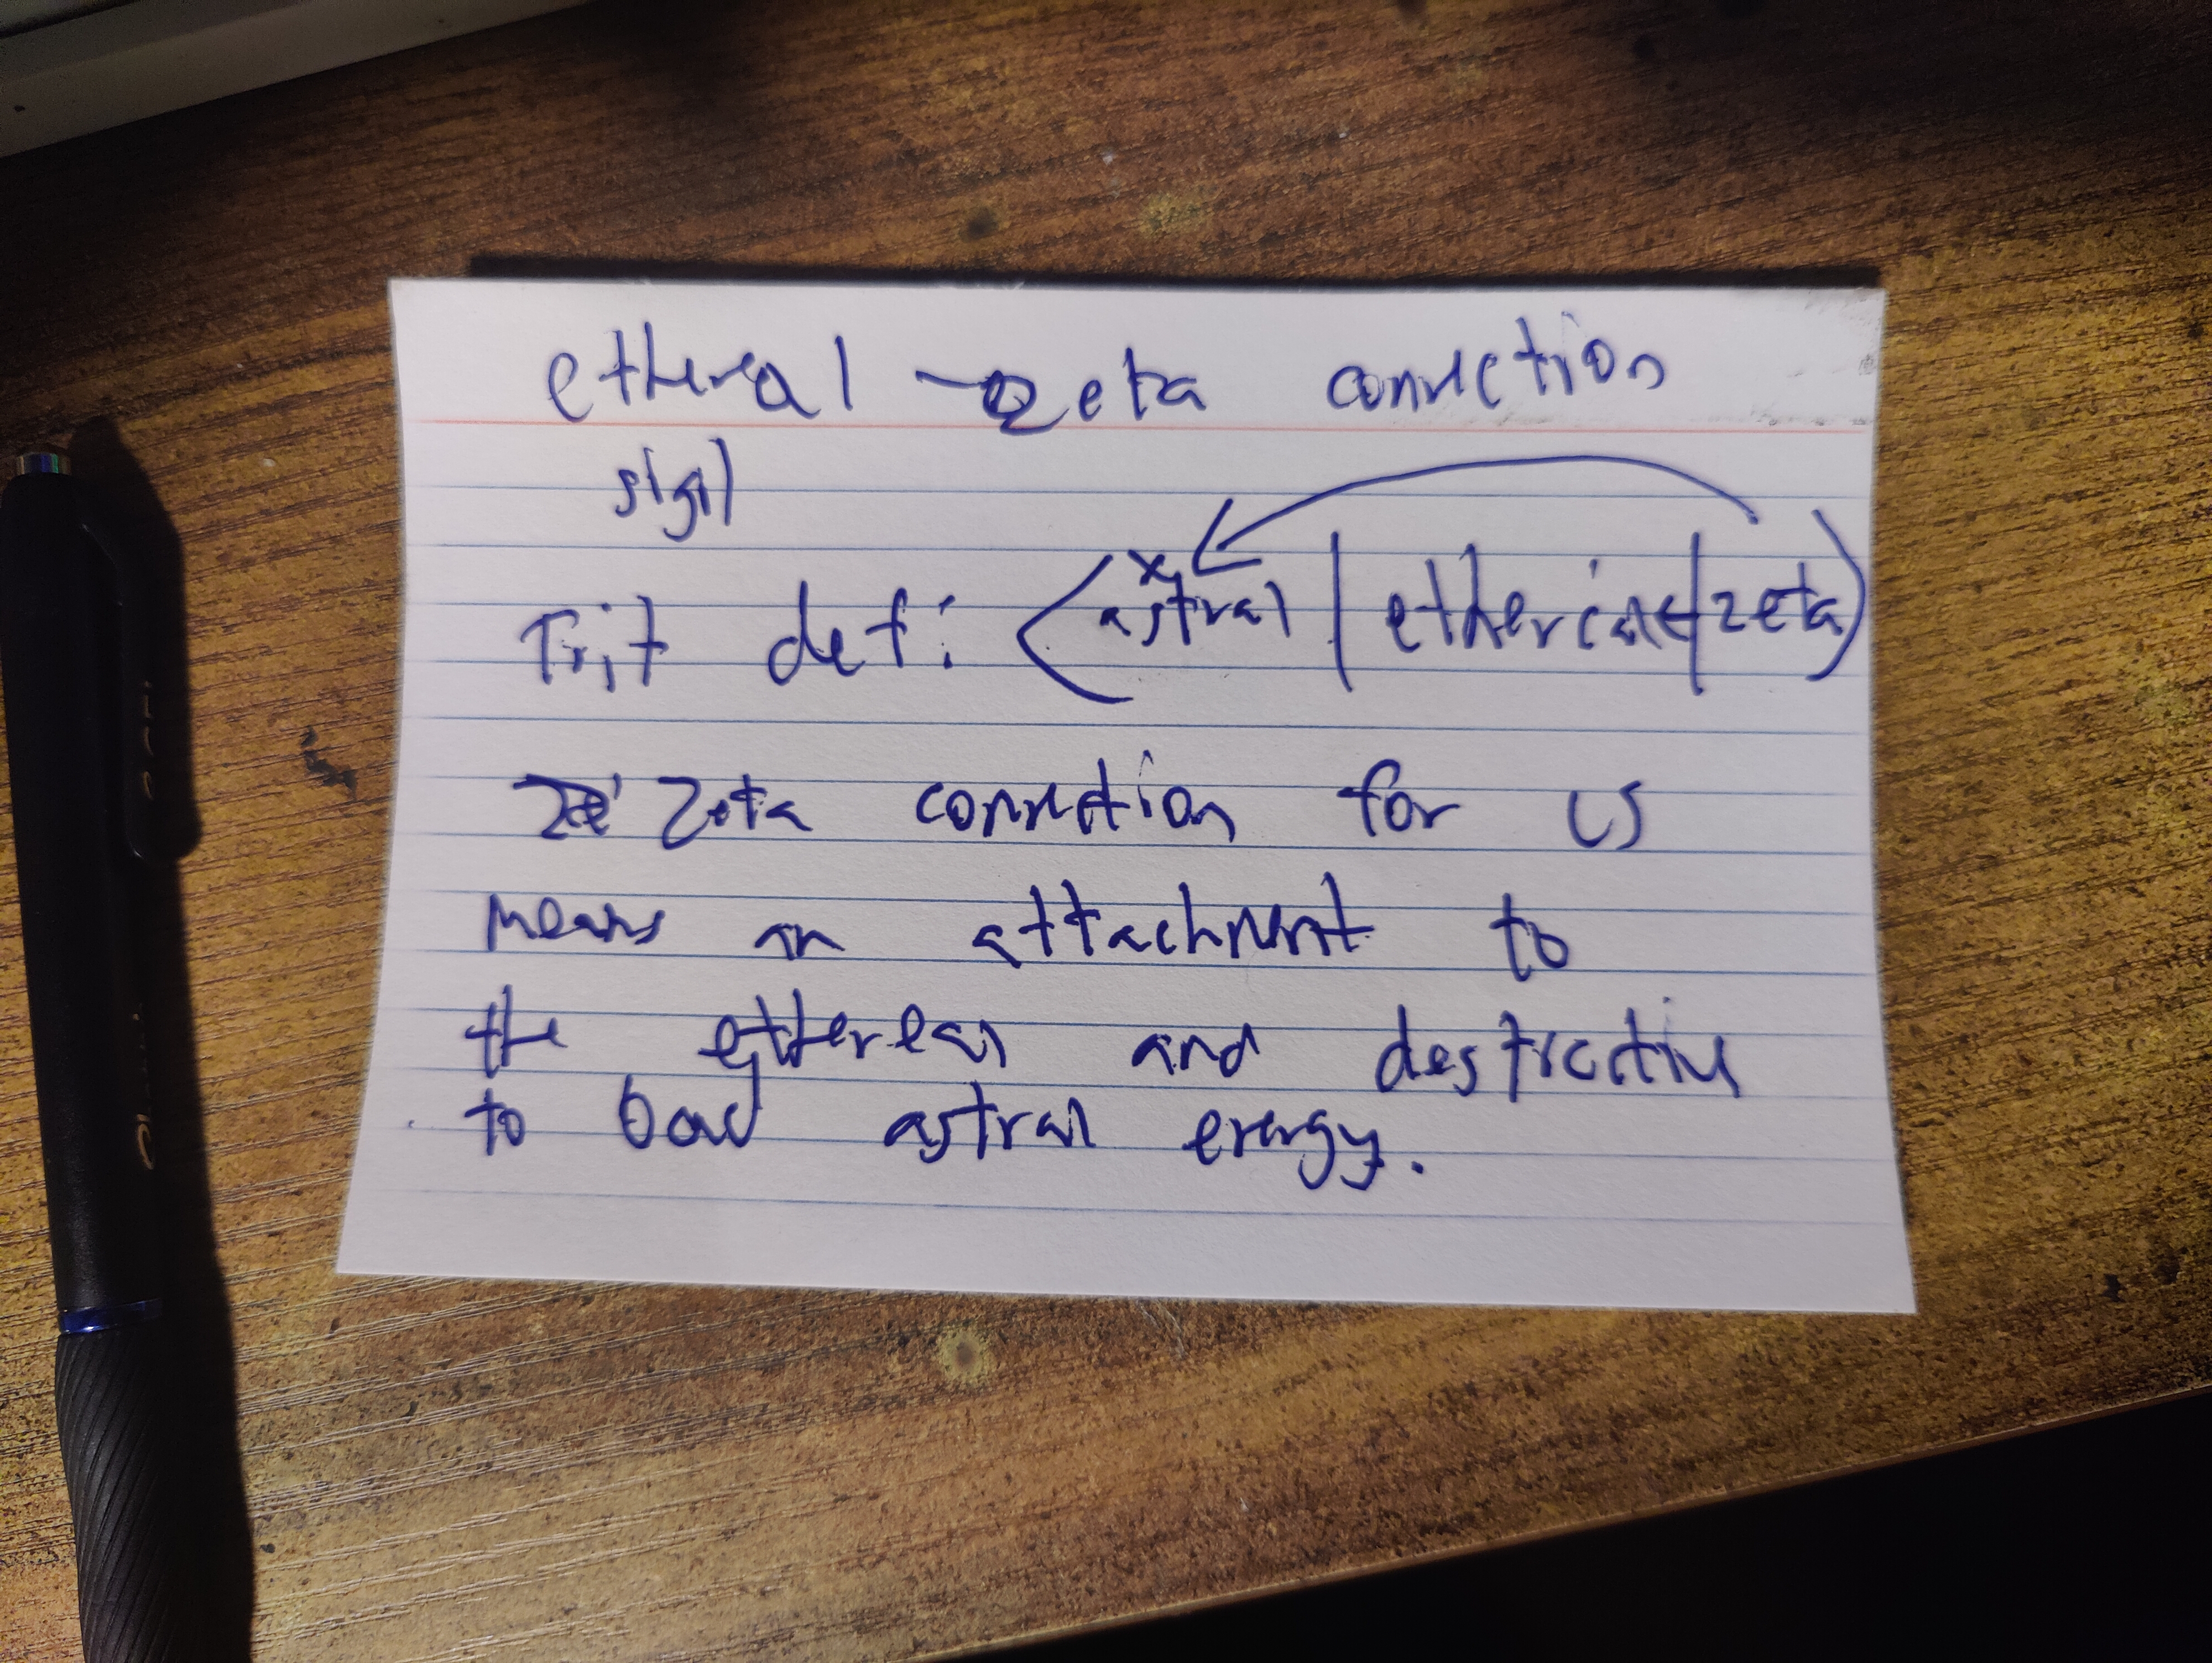 ethereal - zeta connection
sigil
x
Trit def: (astral | ethereal | zeta)
Zeta connection for us
means an attachment to
the ethereal and destructive
to bad astral energy.